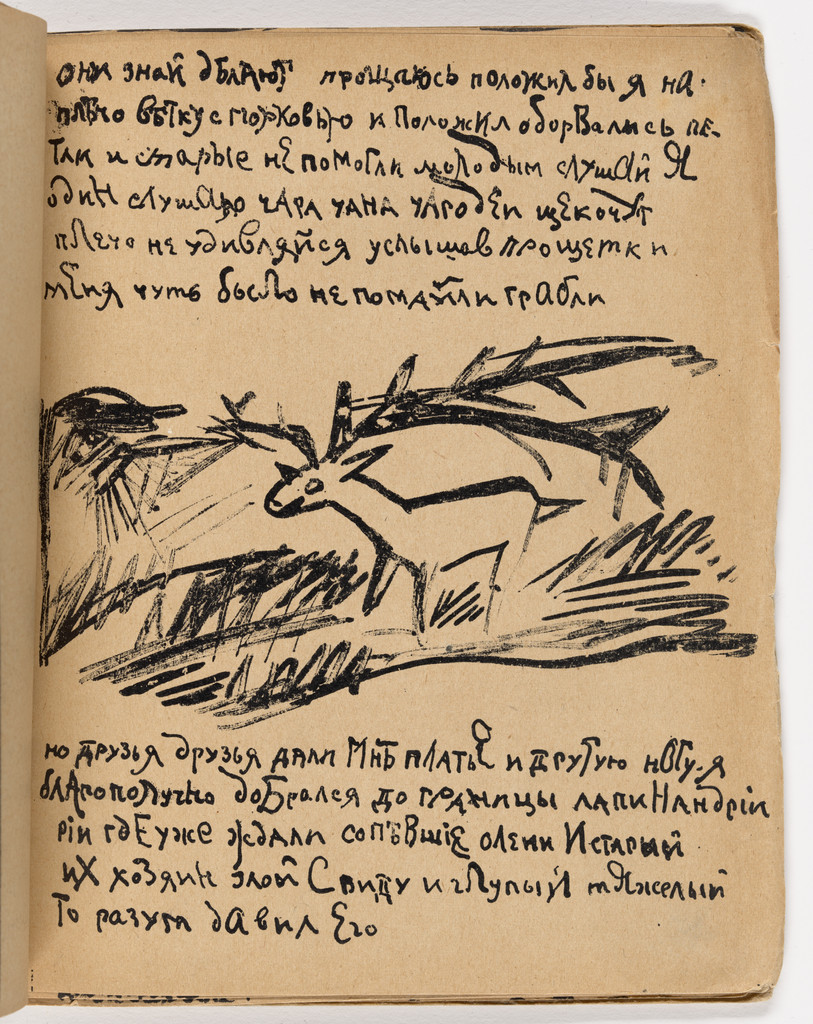 они знай дѣлают прощаюсь положил бы я на
плѣчо вѣтку с морковью и положил оборвались пе-
тли и старые не помогли молодым слушай я
один слушаю чара чана чародеи щекочут
плечо не удивляйся услышав про щетки и
меня чуть было не поймали грабли
но друзья друзья дали мнѣ платье и другую ногу я
благополучно добрался до границы лапинандрiи
рiи гдЕ уже ждали сопѣвшiе олени И старый
их хозяин злой С виду и глупый тЯжелый
То разум давил Его